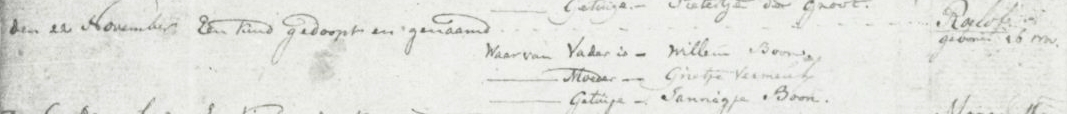 Getuige - Pietertje der Groot.
den 22 November Een kind gedoopt en genaamd Roelof
geboren 16 nov.
Waar van Vader is - Willem Boon,
Moeder - Grietje Vermeul
Getuige - Jannigje Boon.